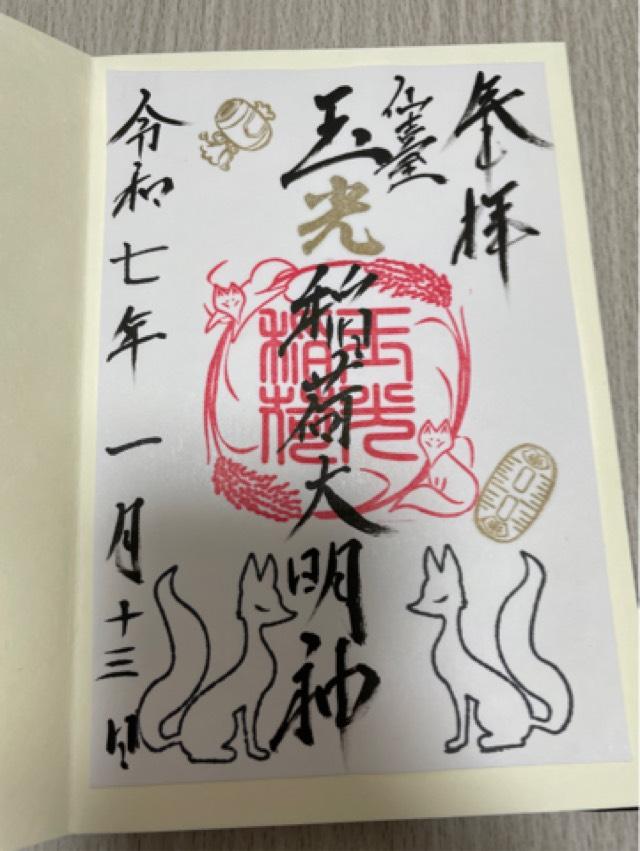 奉拝
仙臺
玉光稲荷大明神
玉光
稲荷
令和七年一月十三日